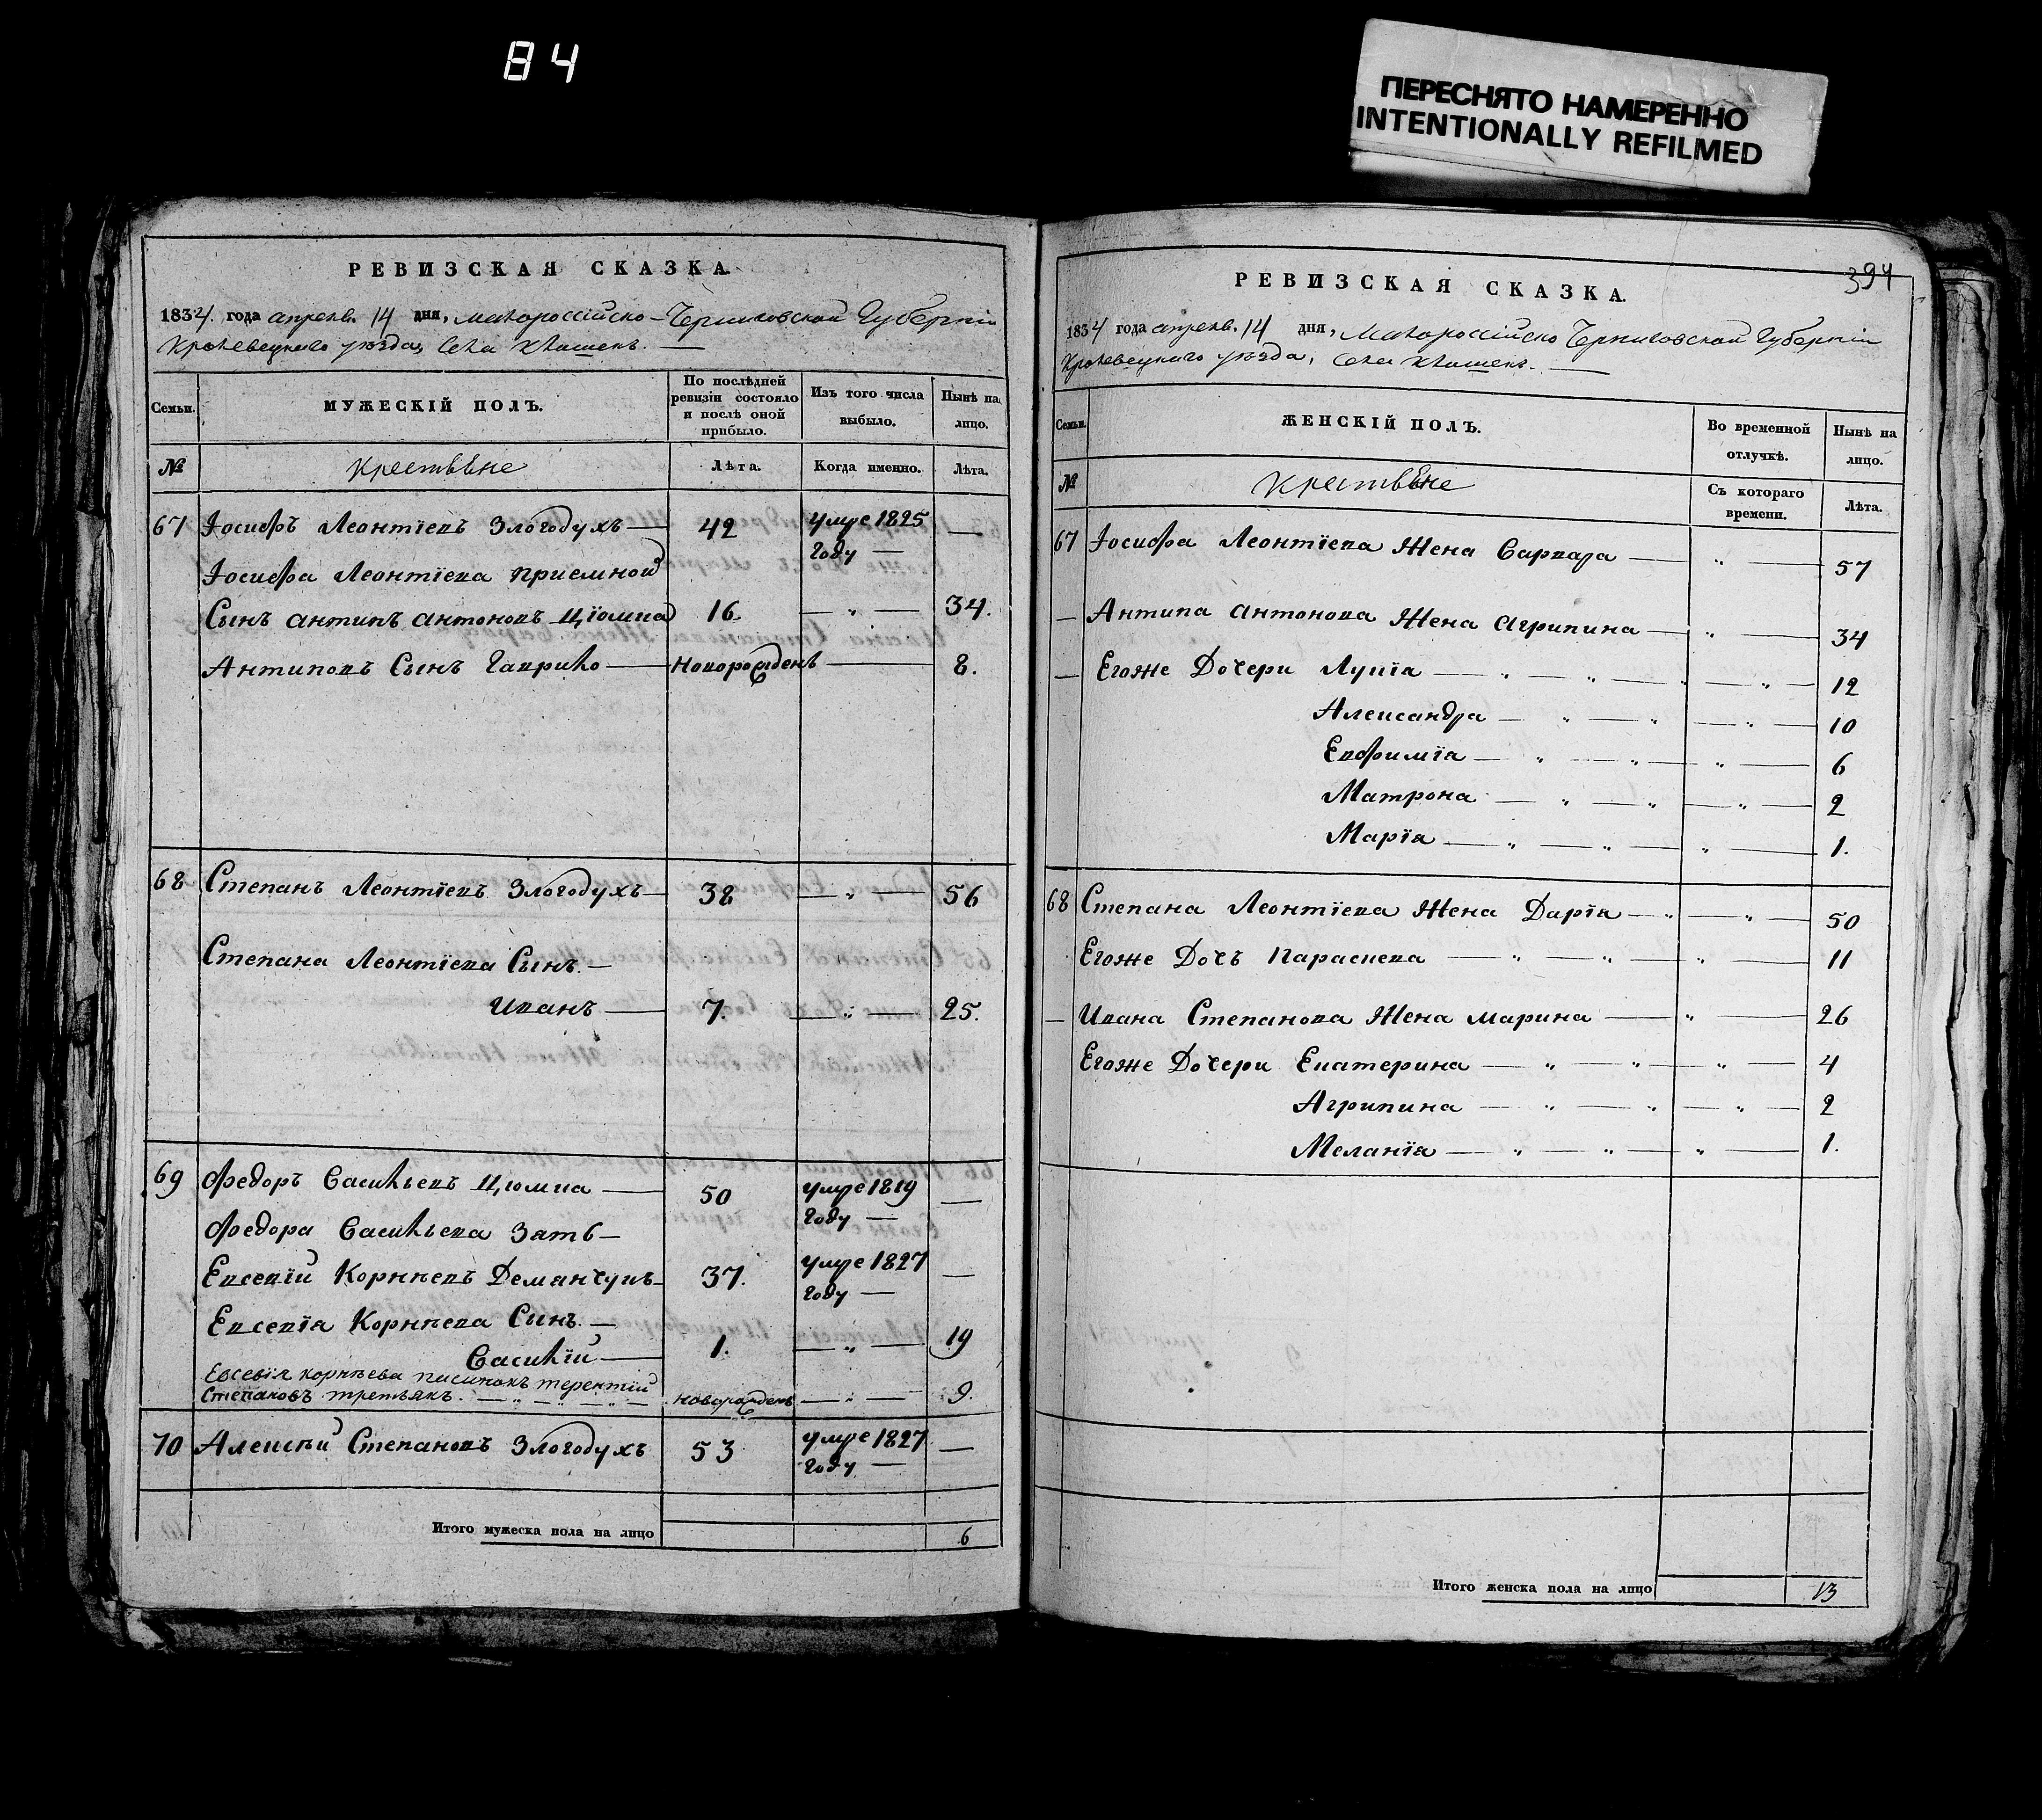 84
ПЕРЕСНЯТО НАМЕРЕННО
INTENTIONALLY REFILMED
РЕВИЗСКАЯ СКАЗКА.
1834. года апреля. 14 дня, Малороссійско-Черниговской Губерніи
Кролевецкаго уѣзда, Села Клишекъ.
Семьи.
МУЖЕСКІЙ ПОЛЪ.
По послѣдней ревизіи состояло и послѣ оной прибыло.
Изъ того числа выбыло.
Нынѣ на лицо.
№
Крестьяне
Лѣта.
Когда именно.
Лѣта.
67 Іосифъ Леонтіевъ Злогодухъ — 42 умре 1825 году — —
Іосифа Леонтіева приемной
Сынъ антипъ антоновъ Ціомка 16. — " — 34.
Антиповъ Сынъ Гаврило — новорожденъ — 8.
68 Степанъ Леонтіевъ Злогодухъ — 38 — " — 56
Степана Леонтіева Сынъ. —
Иванъ — 7. — " — 25.
69 Федоръ Васильевъ Цюмка — 50 умре 1819 году — —
Федора Васильева Зять —
Евсевій Корнѣевъ Деманчукъ — 37. умре 1827 году — —
Евсевія Корнѣева Сынъ. —
Василій — 1. — " — 19
Евсевія корнѣева пасинокъ терентій
Степановъ третьякъ. — " — " — " — новорожденъ — " — 9.
70 Алексѣй Степановъ Злогодухъ 53 умре 1827 году — —
Итого мужеска пола на лицо 6
394
РЕВИЗСКАЯ СКАЗКА.
1834 года апреля. 14 дня, Малороссійско Черниговской Губерніи
Кролевецкаго уѣзда, Села Клишекъ.
Семьи.
ЖЕНСКІЙ ПОЛЪ.
Во временной отлучкѣ.
Нынѣ на лицо.
№
Крестьяне
Съ котораго времени.
Лѣта.
67 Іосифа Леонтіева Жена Варвара — " — 57
— Антипа антонова Жена агрипина — " — 34
— Егоже Дочери Лукіа — " — " — " — " — 12
Александра — " — " — " — 10
Евфиміа — " — " — " — 6
Матрона — " — " — " — 2
Маріа — " — " — " — 1.
68 Степана Леонтіева Жена Даріа — " — " — 50
Егоже Дочъ Параскева — " — " — " — 11
— Ивана Степанова Жена марина — " — 26
Егоже Дочери Екатерина — " — " — " — 4
Агрипина — " — " — " — 2
Меланіа — " — " — " — 1.
Итого женска пола на лицо 13